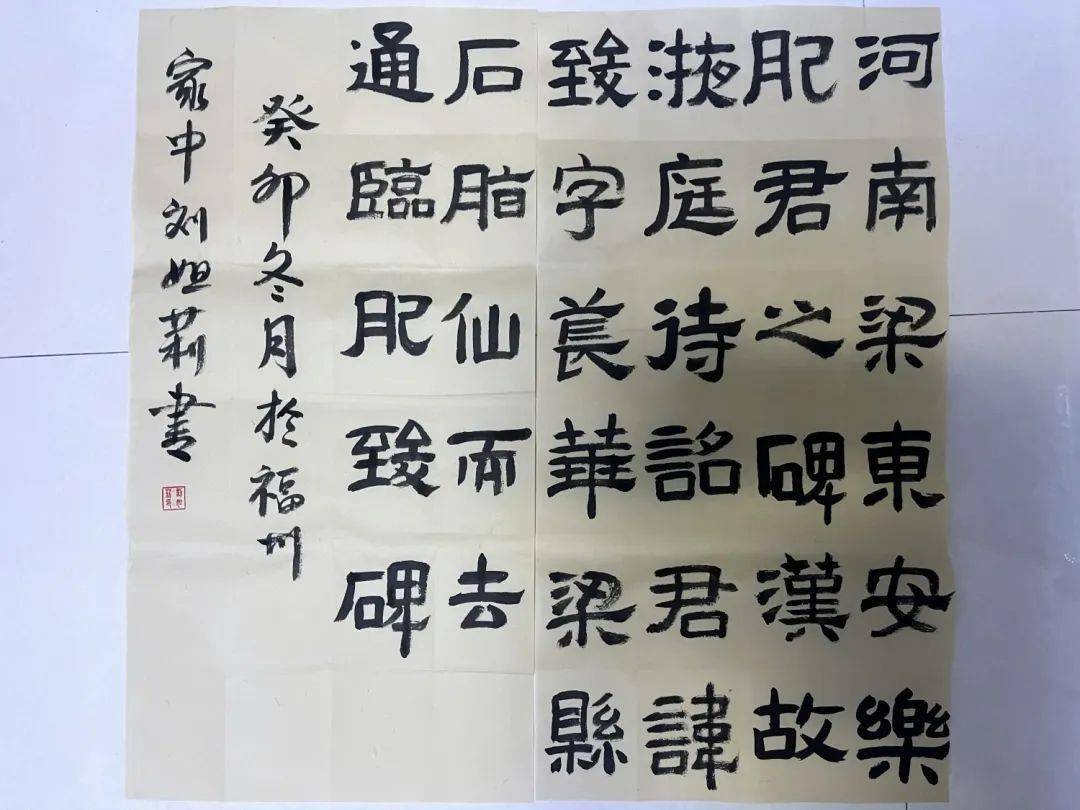 河南梁東安樂
肥君之碑漢故
液庭待詔君諱
致字萇華梁縣
石脂仙而去
通臨肥致碑
癸卯冬月於福州
家中刘妲莉書